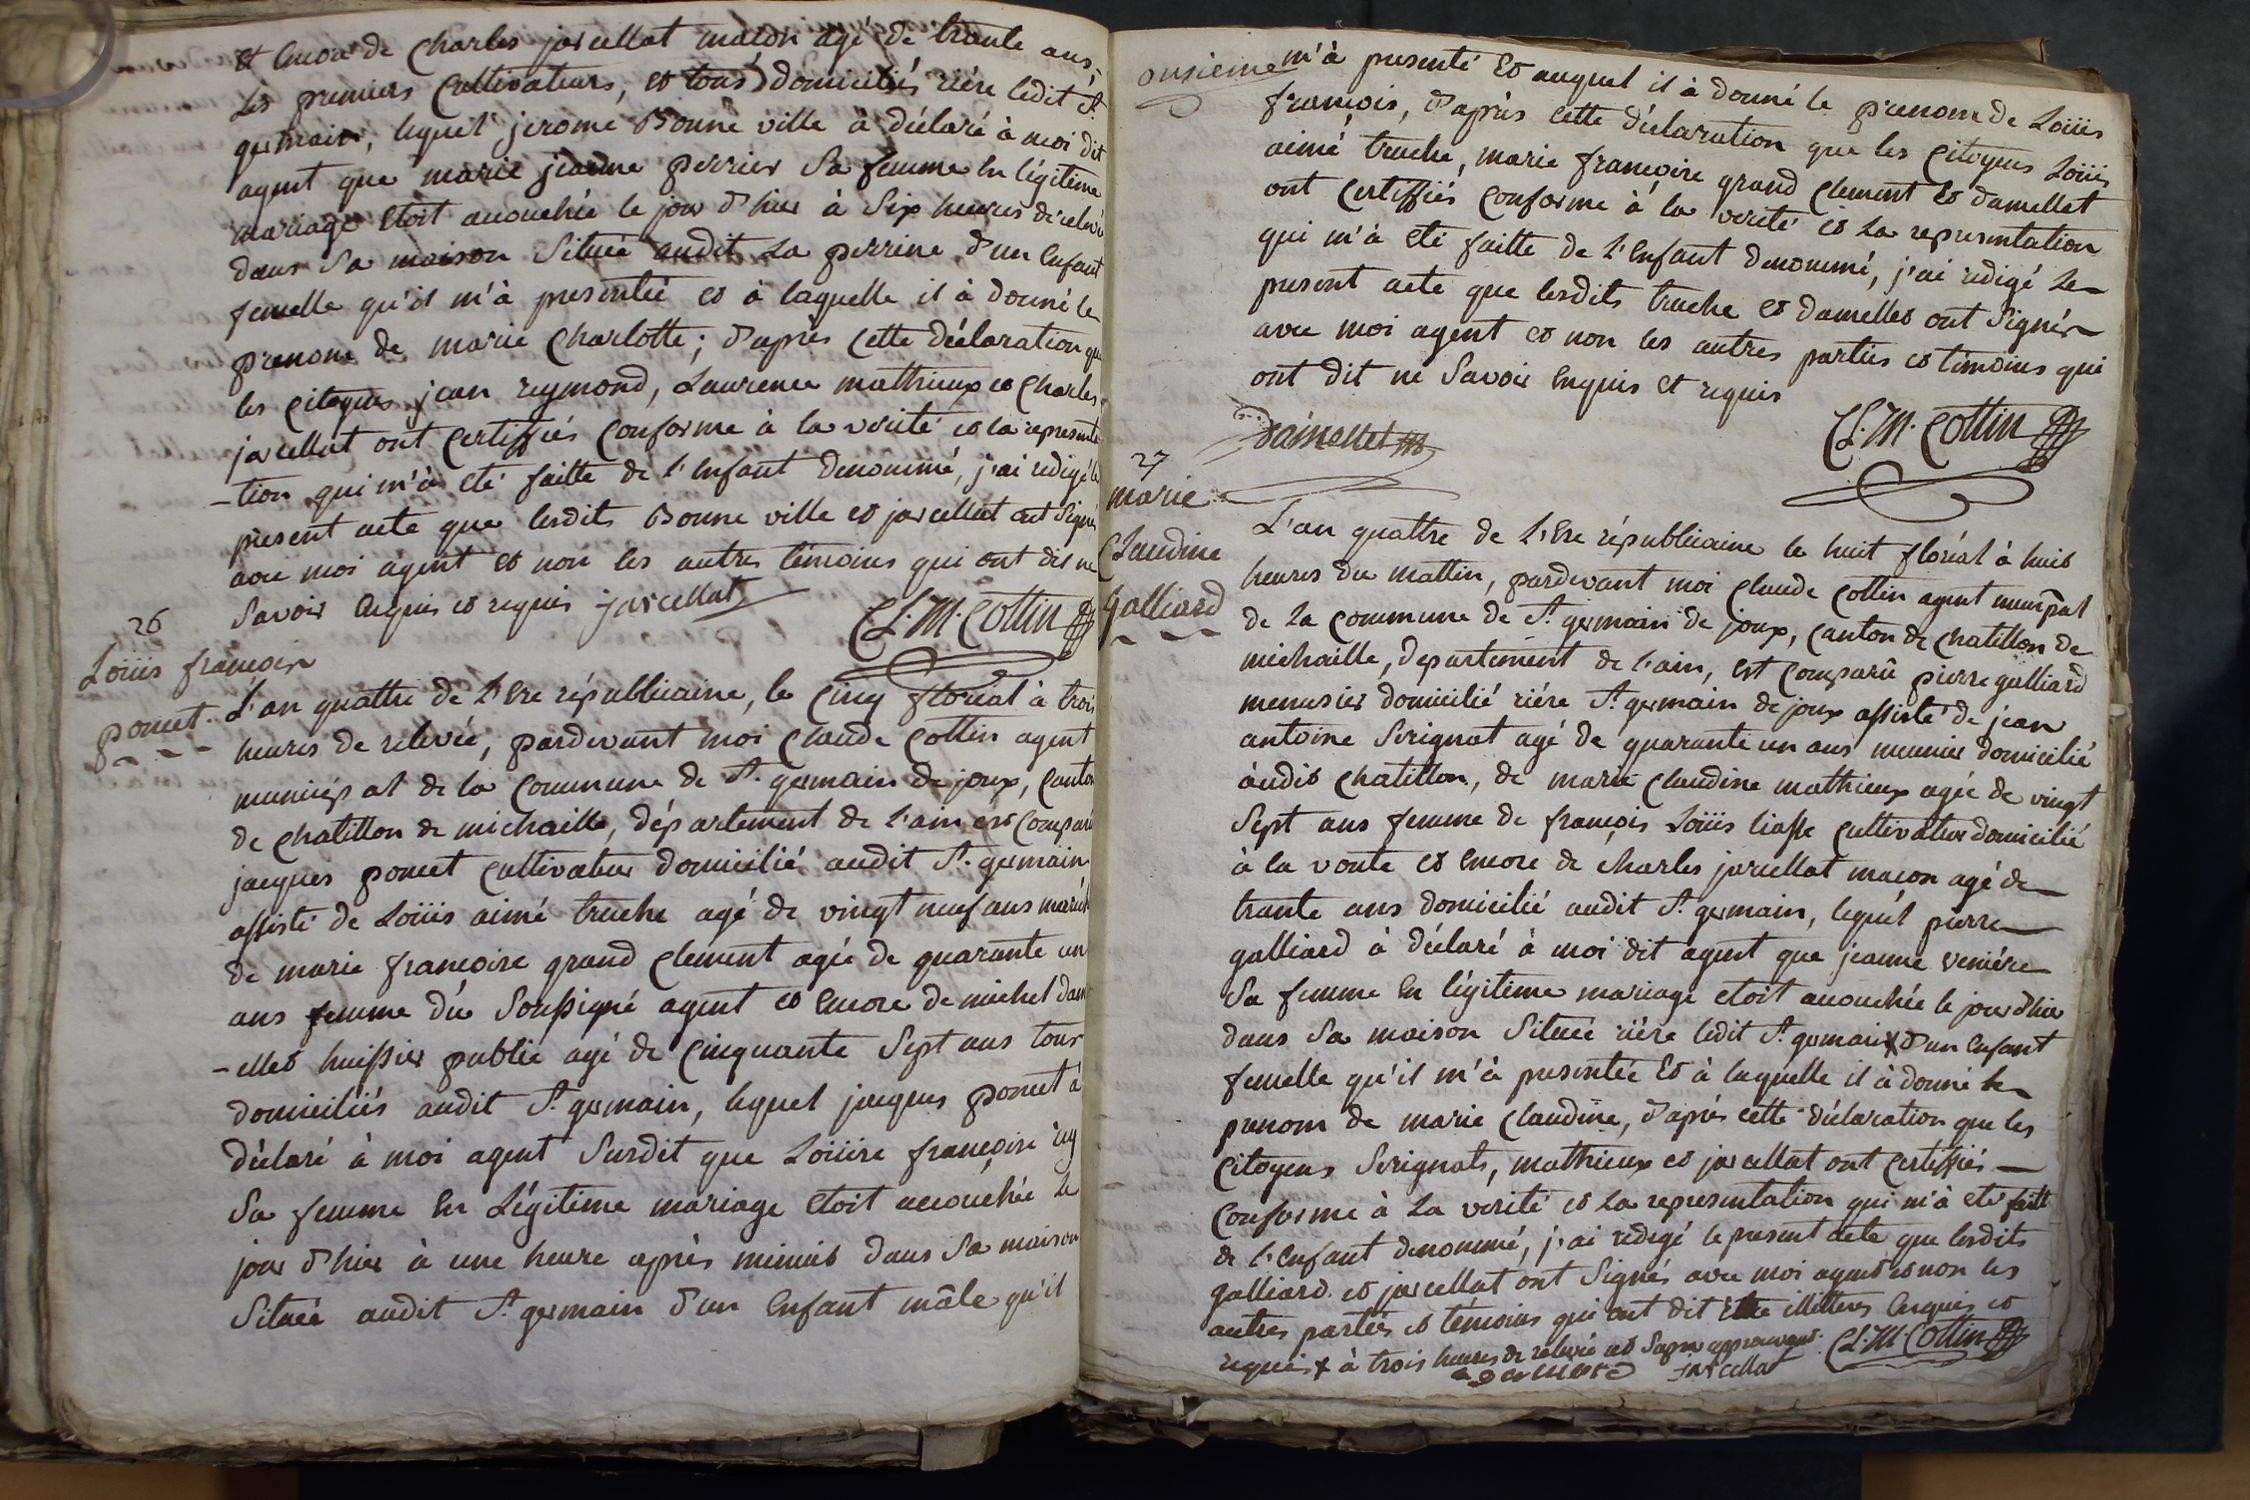 et encore de charles jarcellat macon agé de trante ans,
les premiers Cultivateurs, et tous domiciliés riére ledit St.
germain, lequel jerome Bonne ville à déclaré à moi dit
agent que marie jeanne perrier Sa femme en légitime
mariage etoit accouchée le jour d'hier à Six heures de relevé
dans Sa maison Située audit La perrine d'un Enfant
femelle qu'il m'à presentée et à laquelle il à donné le
prenom de marie Charlotte; d'après cette déclaration que
les citoyens jean reymond, Laurence mathieux et Charles
jarcellat ont Certiffiés Conforme à la vérité et la represente
-tion qui m'à eté faitte de l'Enfant denommé, j'ai redigé le
present acte que lesdits Bonne ville et jarcellat ont Signé
avec moi agent et non les autres témoins qui ont dit ne
Savoir Enquis et requis jarcellat
Cl. M. Cottin
26
Loüis françois
poncet
L'an quattre de l'Ere républicaine, le Cinq floréal à trois
heures de relevée, pardevant moi Claude Cottin agent
municipal de la Commune de St. germain de joux, Canton
de chatillon de michaille, département de l'ain est Comparu
jacques poncet Cultivateur domicilié audit St. germain
assisté de Loüis aimé truche agé de vingt neuf ans maréch
de marie françoise grand Clement agée de quarante un
ans femme du Soussigné agent et Encore de michel dam
-elles huissier public agé de Cinquante Sept ans tous
domiciliés audit St. germain, lequel jacques poncet à
déclaré à moi agent Surdit que Loüise françoise
Sa femme En Légitime mariage etoit accouchée le
jour d'hier à une heure après minuit dans Sa maison
Située audit St. germain d'un Enfant mâle qu'il
onsieme
m'à presenté et auquel il à donné le prenom de Loüis
françois, d'après cette déclaration que les Citoyens Loüis
aimé truche, marie françoise grand Clement et damellet
ont Certiffiés Conforme à la verité et la representation
qui m'à eté faitte de l'Enfant denommé, j'ai redigé Le
present acte que lesdits truche et damelles ont Signés
avec moi agent et non les autres parties et témoins qui
ont dit ne Savoir Enquis et requis
Damellet
Cl. M. Cottin
27
marie
Claudine
Galliard
L'an quattre de l'Ere républicaine le huit floréal à huit
heures du mattin, pardevant moi Claude Cottin agent municipal
de la Commune de St. germain de joux, Canton de Chatillon de
michaille, departement de l'ain, est Comparû pierre galliard
menusier domicilié riére St. germain de joux assisté de jean
antoine Serignat agé de quarante un ans meunier domicilié
audit Chatillon, de marie Claudine mathieux agée de vingt
Sept ans femme de françois Loüis liasse Cultivateur domicilié
à la voute et Encore de Charles jarcellat macon agé de
trante ans domicilié audit St. germain, lequel pierre
galliard à déclaré à moi dit agent que jeanne veniére
Sa femme En légitime mariage etoit accouchée le jour d'hier
dans Sa maison Située riére ledit St. germain x d'un Enfant
femelle qu'il m'à presentée Et à laquelle il à donné le
prenom de marie Claudine, d'après cette déclaration que les
Citoyens Serignats, mathieux et jarcellat ont Certiffiés
Conforme à La verité et La representation qui m'à eté faitt
de l'Enfant denommé, j'ai redigé le present acte que lesdits
galliard et jarcellat ont Signés avec moi agent et non les
autres parties et témoins qui ont dit Etre illitteres Enquis et
requis x à trois heures de relevée
Cl. M. Cottin
jarcellat